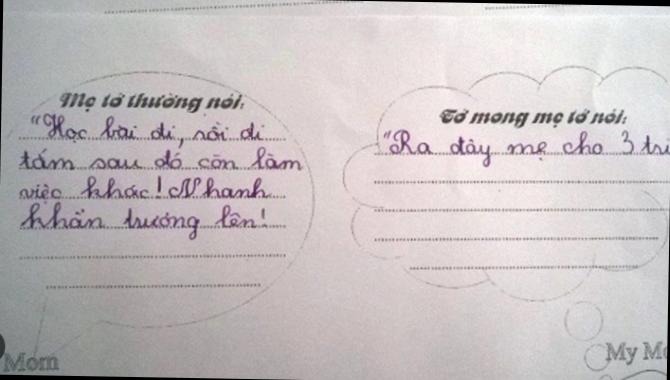 Mẹ tớ thường nói:
"Học bài đi, rồi đi
tắm sau đó còn làm
việc khác! Nhanh
khẩn trương lên!
Tớ mong mẹ tớ nói:
"Ra đây mẹ cho 3 tri
Mom
My Mo